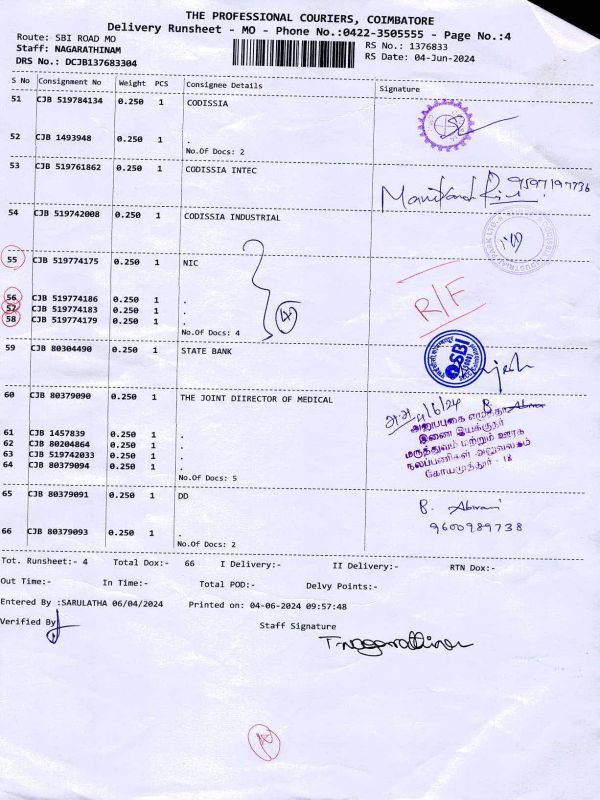 THE PROFESSIONAL COURIERS, COIMBATORE
Delivery Runsheet - MO - Phone No.:0422-3505555 - Page No.:4
Route: SBI ROAD MO
Staff: NAGARATHINAM
DRS No.: DCJB137683304
RS No.: 1376833
RS Date: 04-Jun-2024
S No Consignment No Weight PCS Consignee Details Signature
51 CJB 519784134 0.250 1 CODISSIA
52 CJB 1493948 0.250 1 .
No.Of Docs: 2
53 CJB 519761862 0.250 1 CODISSIA INTEC
9597197736
54 CJB 519742008 0.250 1 CODISSIA INDUSTRIAL
55 CJB 519774175 0.250 1 NIC
R/F
56 CJB 519774186 0.250 1 .
57 CJB 519774183 0.250 1 .
58 CJB 519774179 0.250 1 .
No.Of Docs: 4
4
59 CJB 80304490 0.250 1 STATE BANK
SBI
60 CJB 80379090 0.250 1 THE JOINT DIIRECTOR OF MEDICAL
4/6/24
61 CJB 1457839 0.250 1 .
62 CJB 80204864 0.250 1 .
63 CJB 519742033 0.250 1 .
64 CJB 80379094 0.250 1 .
No.Of Docs: 5
இணை இயக்குநர்
மருத்துவம் மற்றும் ஊரக
நலப்பணிகள் அலுவலகம்
கோயமுத்தூர் - 18
65 CJB 80379091 0.250 1 DD
9600989738
66 CJB 80379093 0.250 1 .
No.Of Docs: 2
Tot. Runsheet:- 4 Total Dox:- 66 I Delivery:- II Delivery:- RTN Dox:-
Out Time:- In Time:- Total POD:- Delvy Points:-
Entered By :SARULATHA 06/04/2024 Printed on: 04-06-2024 09:57:48
Verified By
Staff Signature